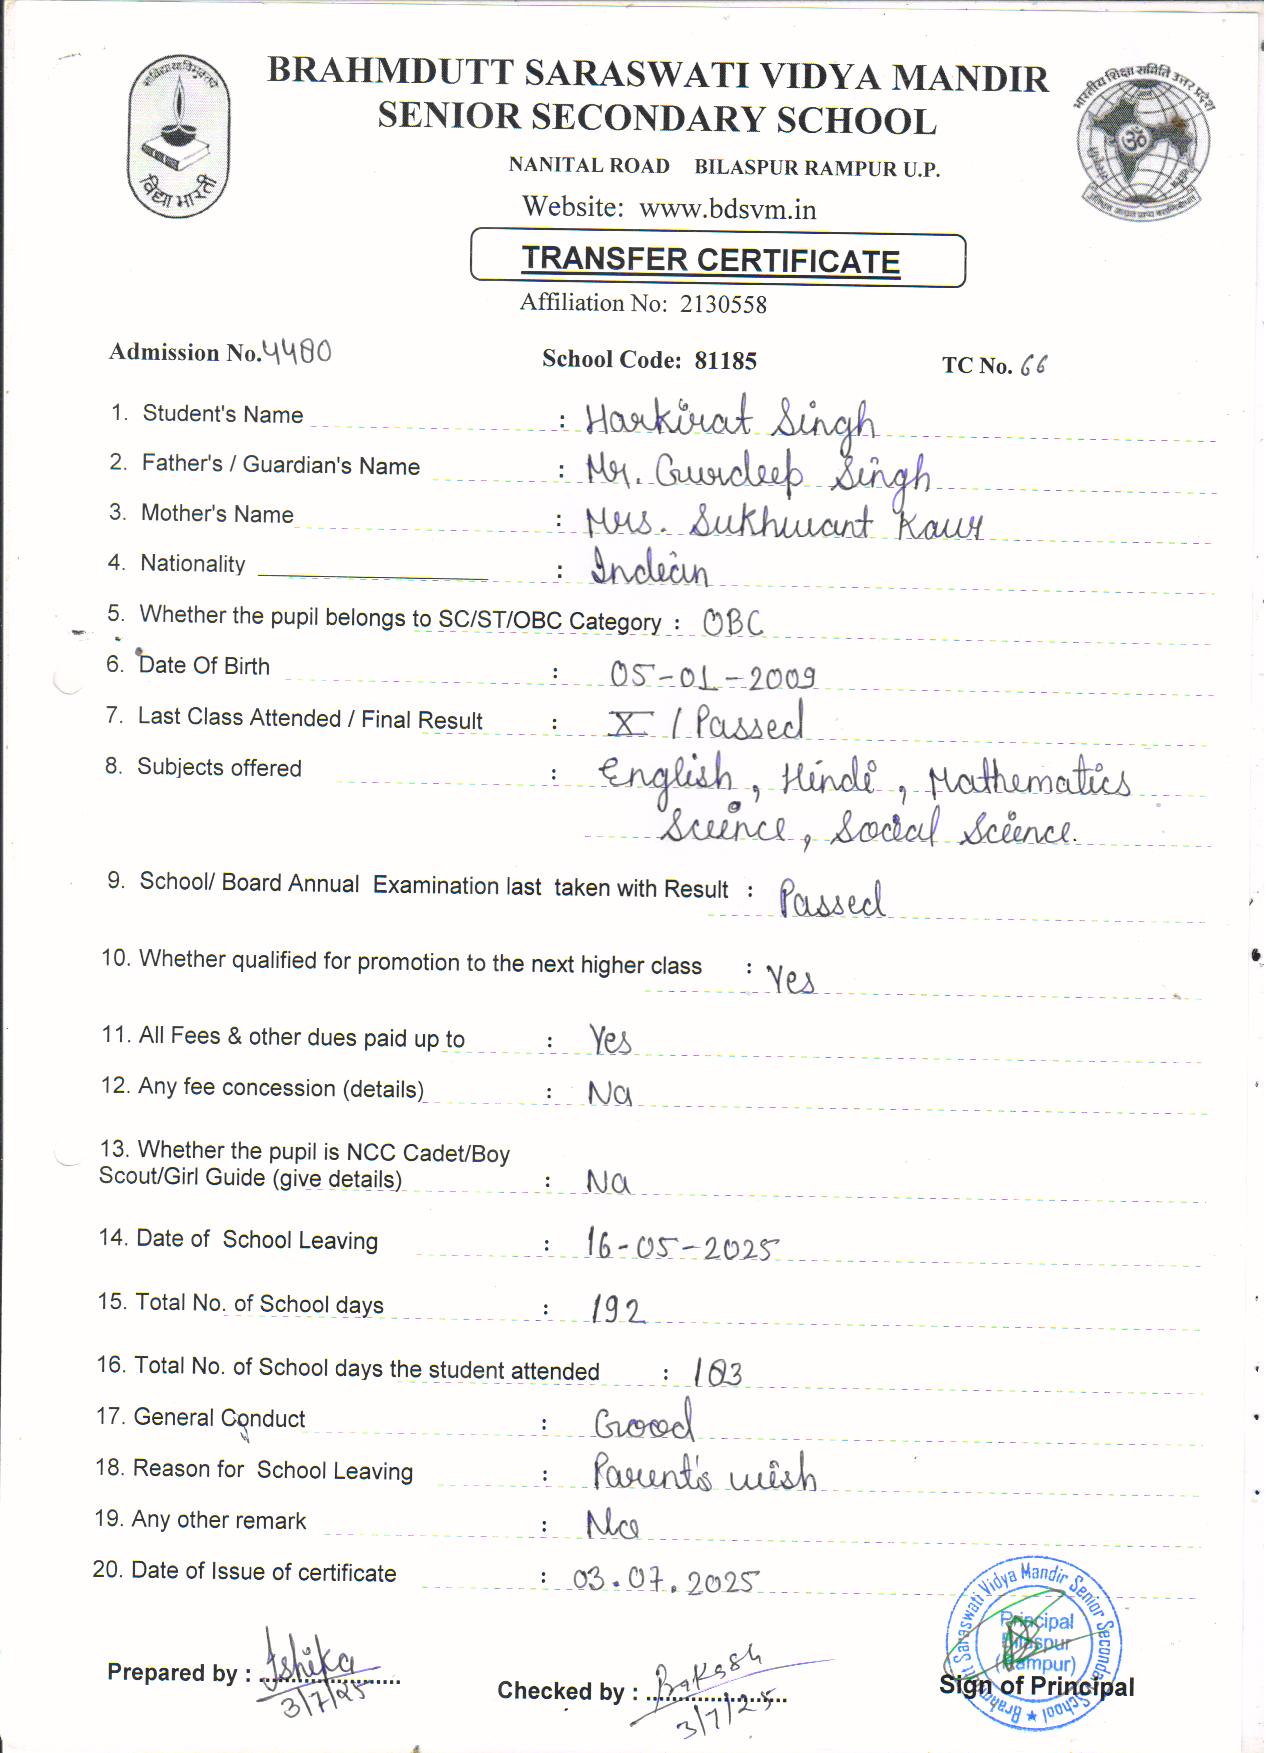 सा विद्या या विमुक्तये
विद्या भारती
BRAHMDUTT SARASWATI VIDYA MANDIR
SENIOR SECONDARY SCHOOL
भारतीय शिक्षा समिति उत्तर प्रदेश
NANITAL ROAD BILASPUR RAMPUR U.P.
Website: www.bdsvm.in
TRANSFER CERTIFICATE
Affiliation No: 2130558
Admission No. 4480 School Code: 81185 TC No. 66
1. Student's Name : Harkirat Singh
2. Father's / Guardian's Name : Mr. Gurdeep Singh
3. Mother's Name : Mrs. Sukhwant Kaur
4. Nationality : Indian
5. Whether the pupil belongs to SC/ST/OBC Category : OBC
6. Date Of Birth : 05-01-2009
7. Last Class Attended / Final Result : X / Passed
8. Subjects offered : English, Hindi, Mathematics
Science, Social Science.
9. School/ Board Annual Examination last taken with Result : Passed
10. Whether qualified for promotion to the next higher class : Yes
11. All Fees & other dues paid up to : Yes
12. Any fee concession (details) : Na
13. Whether the pupil is NCC Cadet/Boy
Scout/Girl Guide (give details) : Na
14. Date of School Leaving : 16-05-2025
15. Total No. of School days : 192
16. Total No. of School days the student attended : 183
17. General Conduct : Good
18. Reason for School Leaving : Parent's wish
19. Any other remark : No
20. Date of Issue of certificate : 03.07.2025
Prepared by : Ishika
3/7/25
Checked by :
3/7/25
Brahmdutt Saraswati Vidya Mandir Senior Secondary School
Principal
Bilaspur
(Rampur)
Sign of Principal